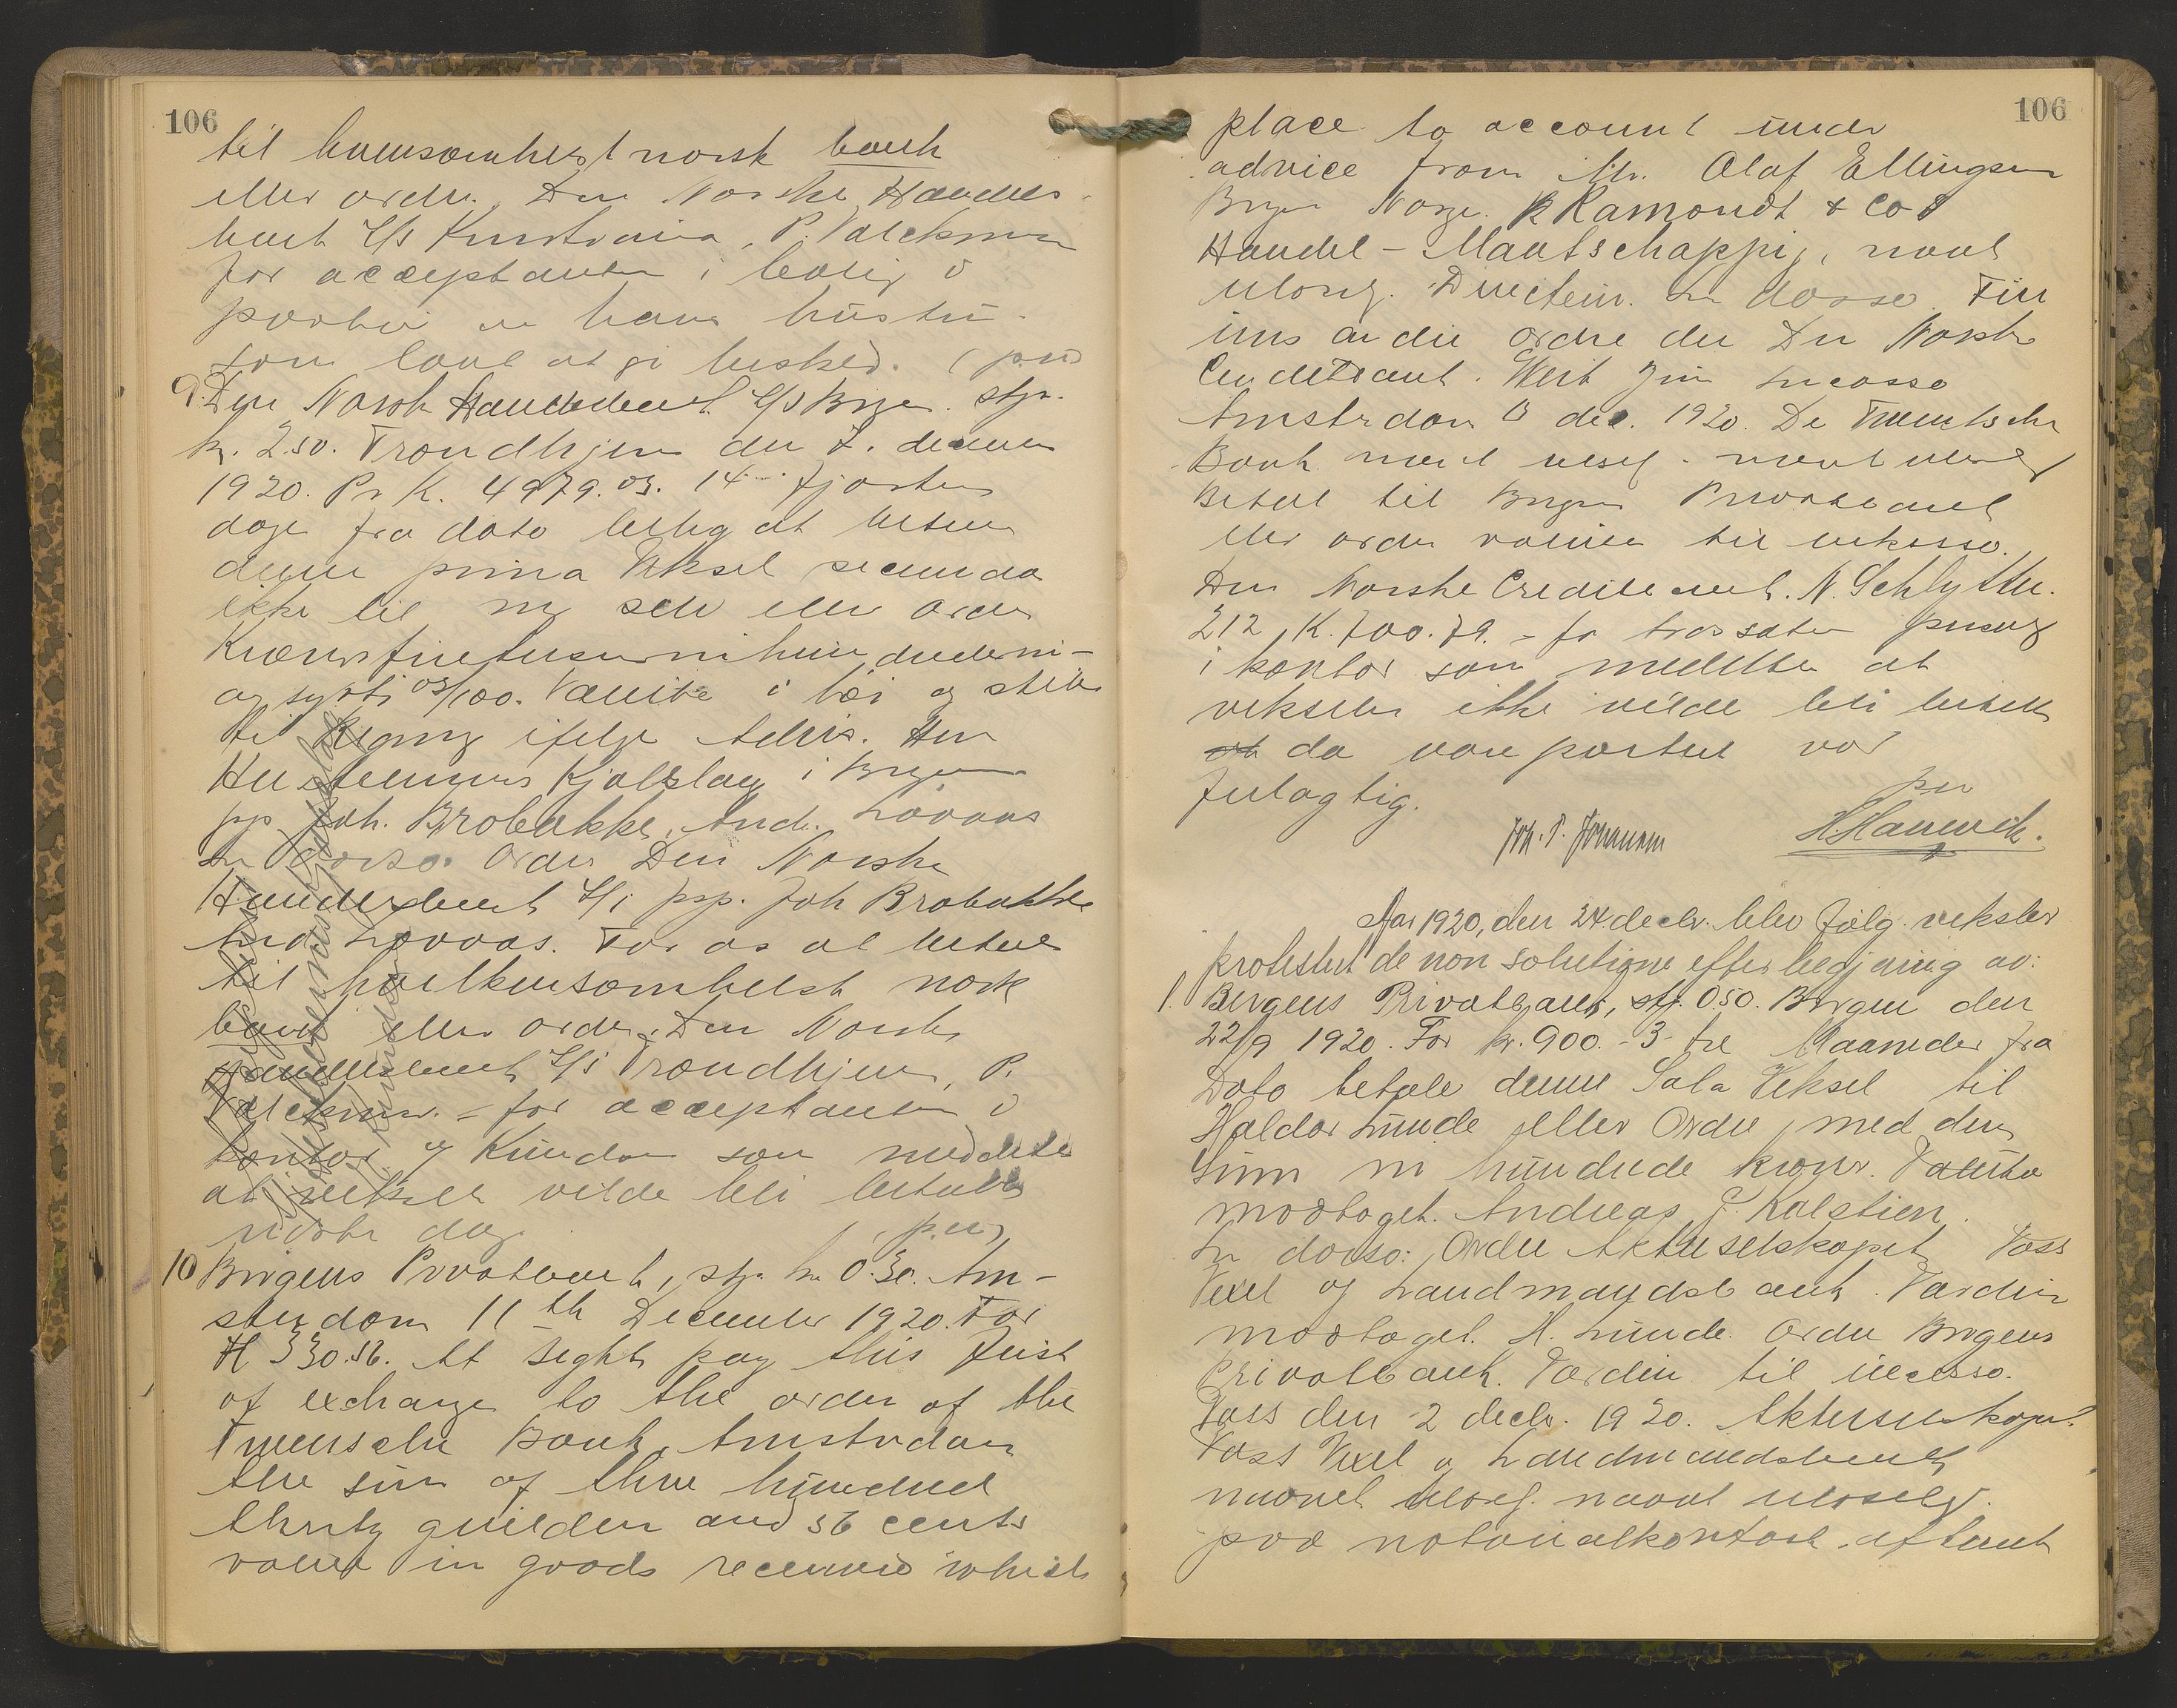 106
til hvemsomhelst norsk bank
eller ordre. Den Norske Handels-
bank A/S Kristiania, P. Valckmar
for acceptanten i bolig &
partert av hans hustru
som lovet at gi besked. (p.m)
9. Den Norske Handelsbank A/S Brgn. stp.
kr. 2.50. Trondhjem den 7. december
1920. Pr K. 4979.03. 14 fjorten
dage fra dato behag at betale
denne prima Veksel secunda
ikke til mig selv eller ordre
Kroner firetusennihundredeni-
og sytti 03/100. Valuta i vær og stilles
til Regning ifølge Advis. Herr
Kjøtlag i Bergen
pp. Joh. Brobakke, And. Løvaas
In dorso. Ordre Den Norske
Handelsbank A/S pp. Joh Brobakke
And. Løvaas. For os at betale
til hvilkensomhelst norsk
bank eller ordre. Den Norske
Handelsbank A/S Trondhjem, P.
Valckmar. - for acceptanten i
kontor og Kunden som meddelte
at vekselen vilde bli betalt
næste dag. (p.m)
10 Bergens Privatbank, stp. kr 0.30. Am-
sterdam 11th December 1920. For
Hfl 330.56. At sight pay this First
of exchange to the order of the
Twentsche Bank, Amsterdam
the sum of three hundred
thirty guilden and 56 cents
value in goods received which
106
place to account under
advice from Mr. Olaf Ellingsen
Brgn Norge. P Ramondt & Co's
Handel-Maatschappij, navnt
ulæsel. Directeur. In dorso. Für
uns an die ordre der Den Norske
Creditbank. Wert zum Incasso
Amsterdam 13 dec. 1920. De Twentsche
Bank navnt ulæsel. navnt ulæsel
Betal til Bergens Privatbank
eller ordre valuta til inkasso.
Den Norske Creditbank. N. Schlytter.
212, K. 700.79. - for trassaten personlig
i kontor som meddelte at
vekselen ikke vilde bli betalt
da varepartiet var
feilagtig.
pm
Joh. P. Johannesen
H Hauvich.
Aar 1920, den 24. decbr. blev følg. veksler
protestert de non solutione efter begjæring av:
1. Bergens Privatbank, stp. 0.50. Bergen den
22/9 1920. For kr. 900.- 3 - tre Maaneder fra
Dato betale denne Sola Veksel til
Haldor Lunde eller Ordre, med den
Sum ni hundrede kroner. Valuta
modtaget. Andreas J. Kalstien.
In dorso: Ordre Aktieselskapet Voss
Vexel og Landmandsbank. Værdien
modtaget. H. Lunde. Ordre Bergens
Privatbank. Værdien til incasso.
Voss den 2 decbr. 1920. Aktieselskapet
Voss Vexel og Landmandsbank
navnet ulæsel. navnt ulæselg.
paa notarialkontoret. aftent